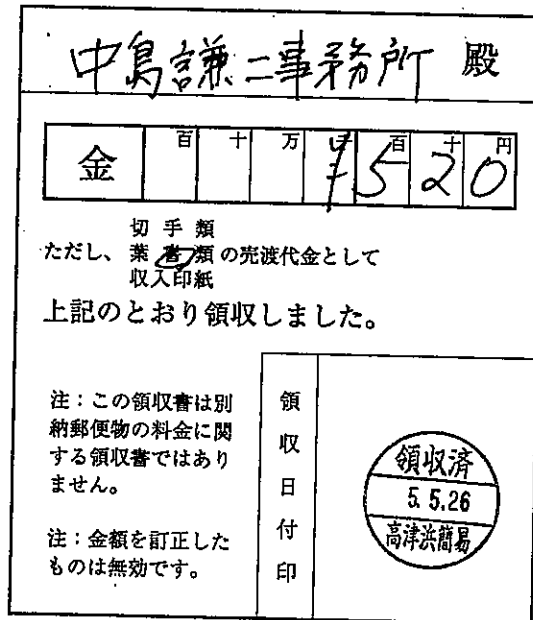 中島謙二事務所 殿
金 百 十 万 千 百 十 円
¥ 5 2 0
切手類
ただし、葉書類の売渡代金として
収入印紙
上記のとおり領収しました。
注：この領収書は別
納郵便物の料金に関
する領収書ではあり
ません。
注：金額を訂正した
ものは無効です。
領収日付印
領収済
5.5.26
高津浜簡易